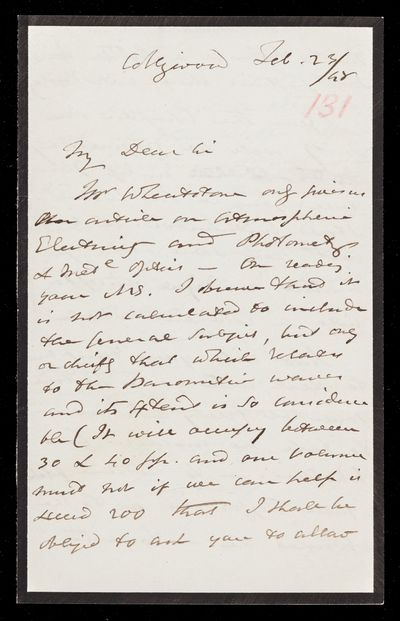 Collingwood Feb. 23/48
131
My Dear Sir
Mr Wheatstone only gives us
an article on Atmospheric
Electricity and Photometry
& Metl Optics — On reading
your MS. I perceive that it
is not calculated to include
the general subject, but only
or chiefly that which relates
to the Barometric waves
and its extent is so considera
ble (It will occupy between
30 & 40 pp. and our volume
must not if we can help it
exceed 200 that I shall be
obliged to ask you to allow